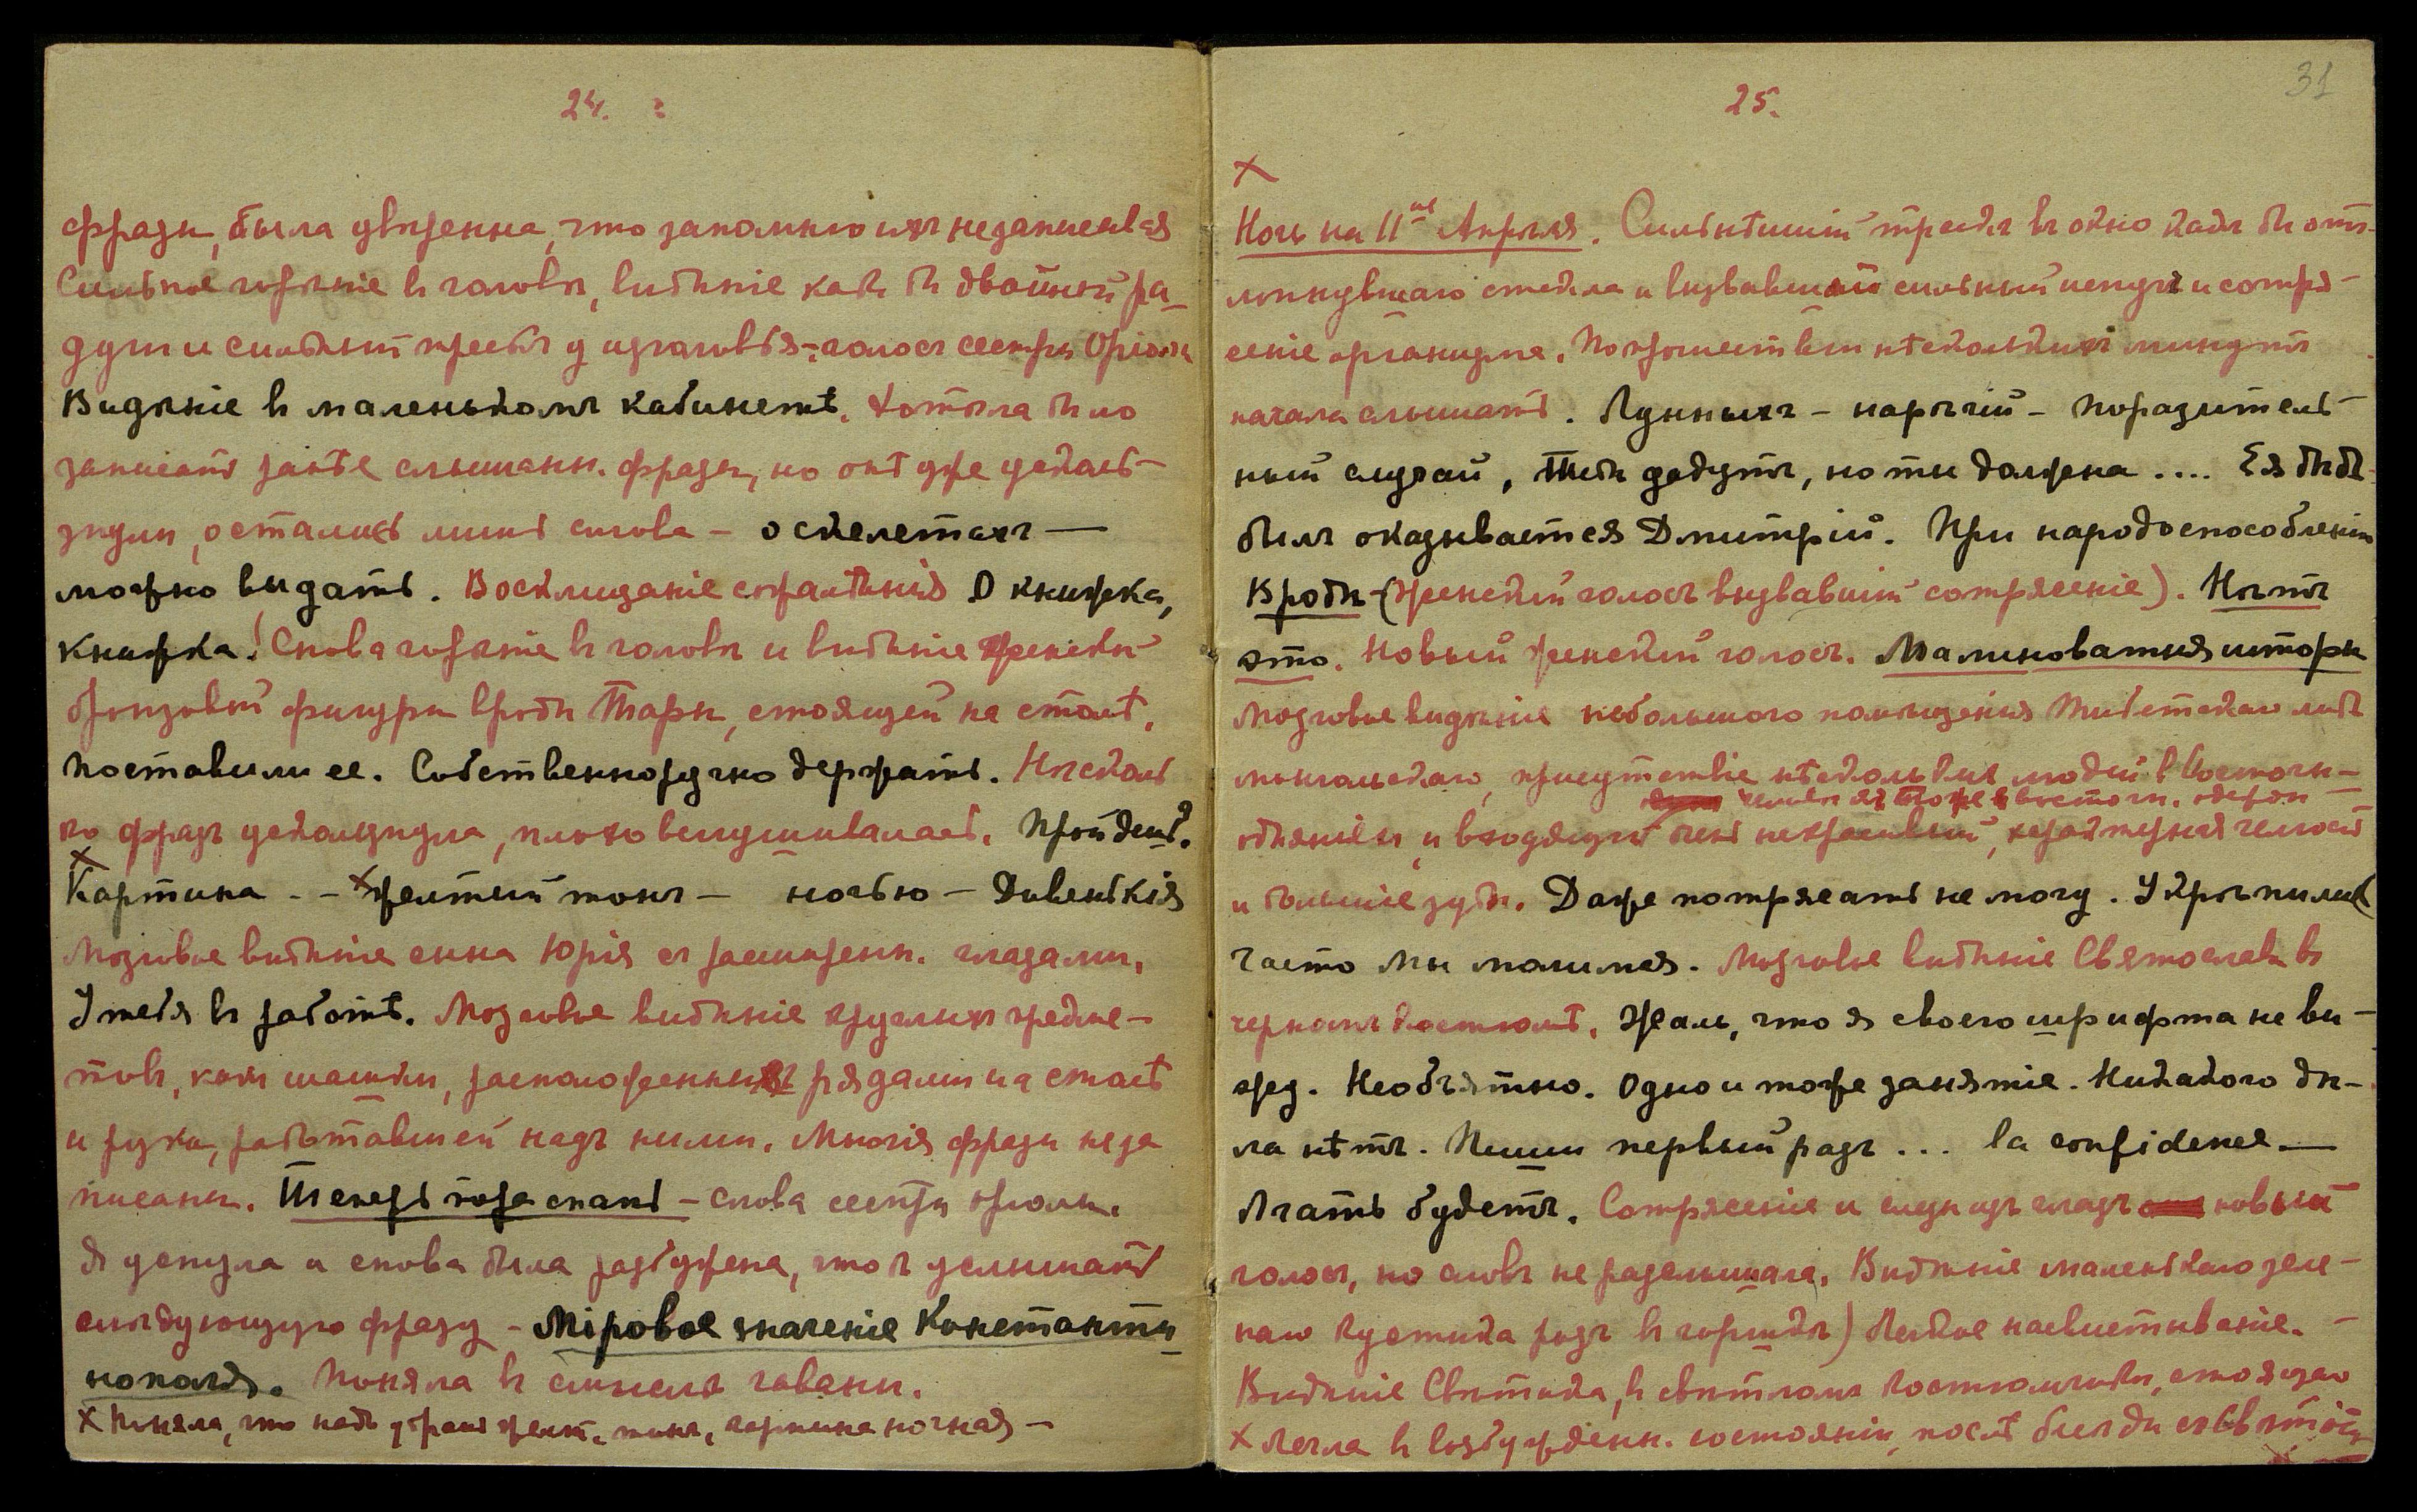 24.
фразы, была увѣренна, что запомню ихъ не записывая
Сильное горѣніе въ головѣ, видѣніе какъ бы двойной ра-
дуги и сильный трескъ у изголовья - голосъ сестры Оріолы
Видѣніе въ маленькомъ кабинетѣ. Хотѣла было
записать ранѣе слышанн. фразы, но онѣ уже усколь-
знули, остались лишь слова - о скелетахъ —
можно выдать. Восклицаніе сожалѣнія О книжка,
книжка! Снова горѣніе въ головѣ и видѣніе женской
бронзовой фигуры вродѣ Тары, стоящей на столѣ.
Поставили ее. Собственноручно держать. Нѣсколь
ко фразъ ускользнула, плохо вслушивалась. Пройдетъ?
Картина - - желтый тонъ - ночью - Дивенькія
Мозговое видѣніе сына Юрія съ расширенн. глазами.
У тебя въ работѣ. Мозговое видѣніе круглыхъ предме-
товъ, какъ шашки, расположенныхъ рядами на столѣ
и рука, работавшей надъ ними. Многія фразы не за
писаны. Теперь пора спать - слова сестры Оріолы.
Я уснула и снова была разбужена, чтоб услышать
слѣдующую фразу - Міровое значеніе Константи
нополя. Поняла въ смыслѣ гавани.
x Поняла, что надо убрать желт. тонъ, картина ночная -
25.
31
x
Ночь на 11ое Апрѣля. Сильнѣйшій трескъ въ окно какъ бы отъ
лопнувшаго стекла и вызвавшій сильный испугъ и сотря-
сеніе организма. По прошествіи нѣсколькихъ минутъ
начала слышать. Лунныхъ - нарѣчій - поразитель-
ный случай, Тебѣ дадутъ, но ты должна ....
былъ оказывается Дмитрій. При народоспособленіи
Вродѣ - (женскій голосъ вызвавшій сотрясеніе). Нѣтъ
это. Новый женскій голосъ. Малиноватыя шторы
Мозговое видѣніе небольшого помѣщенія Тибетскаго либо
монгольскаго, присутствіе нѣсколькихъ людей въ восточн-
одѣяніяхъ, и входящій некрасивый, челюсть
и большіе зубы. Даже потрясать не могу. Укрѣпились
Часто мы молимся. Мозговое видѣніе Святослава въ
черномъ костюмѣ. Жаль, что я своего шрифта не ви-
жу. Необъятно. Одно и тоже занятіе. Никакого дѣ-
ла нѣтъ. Пиши первый разъ ... la confidence —
Лгать будетъ. Сотрясеніе и новый
голосъ, но словъ не разслышала. Видѣніе маленькаго зеле-
наго кустика розъ въ горшкѣ) Легкое насвистываніе. -
Видѣніе Свѣтика, въ свѣтломъ костюмчикѣ, стоящаго
x Легла въ возбужденн. состояніи, послѣ бесѣды